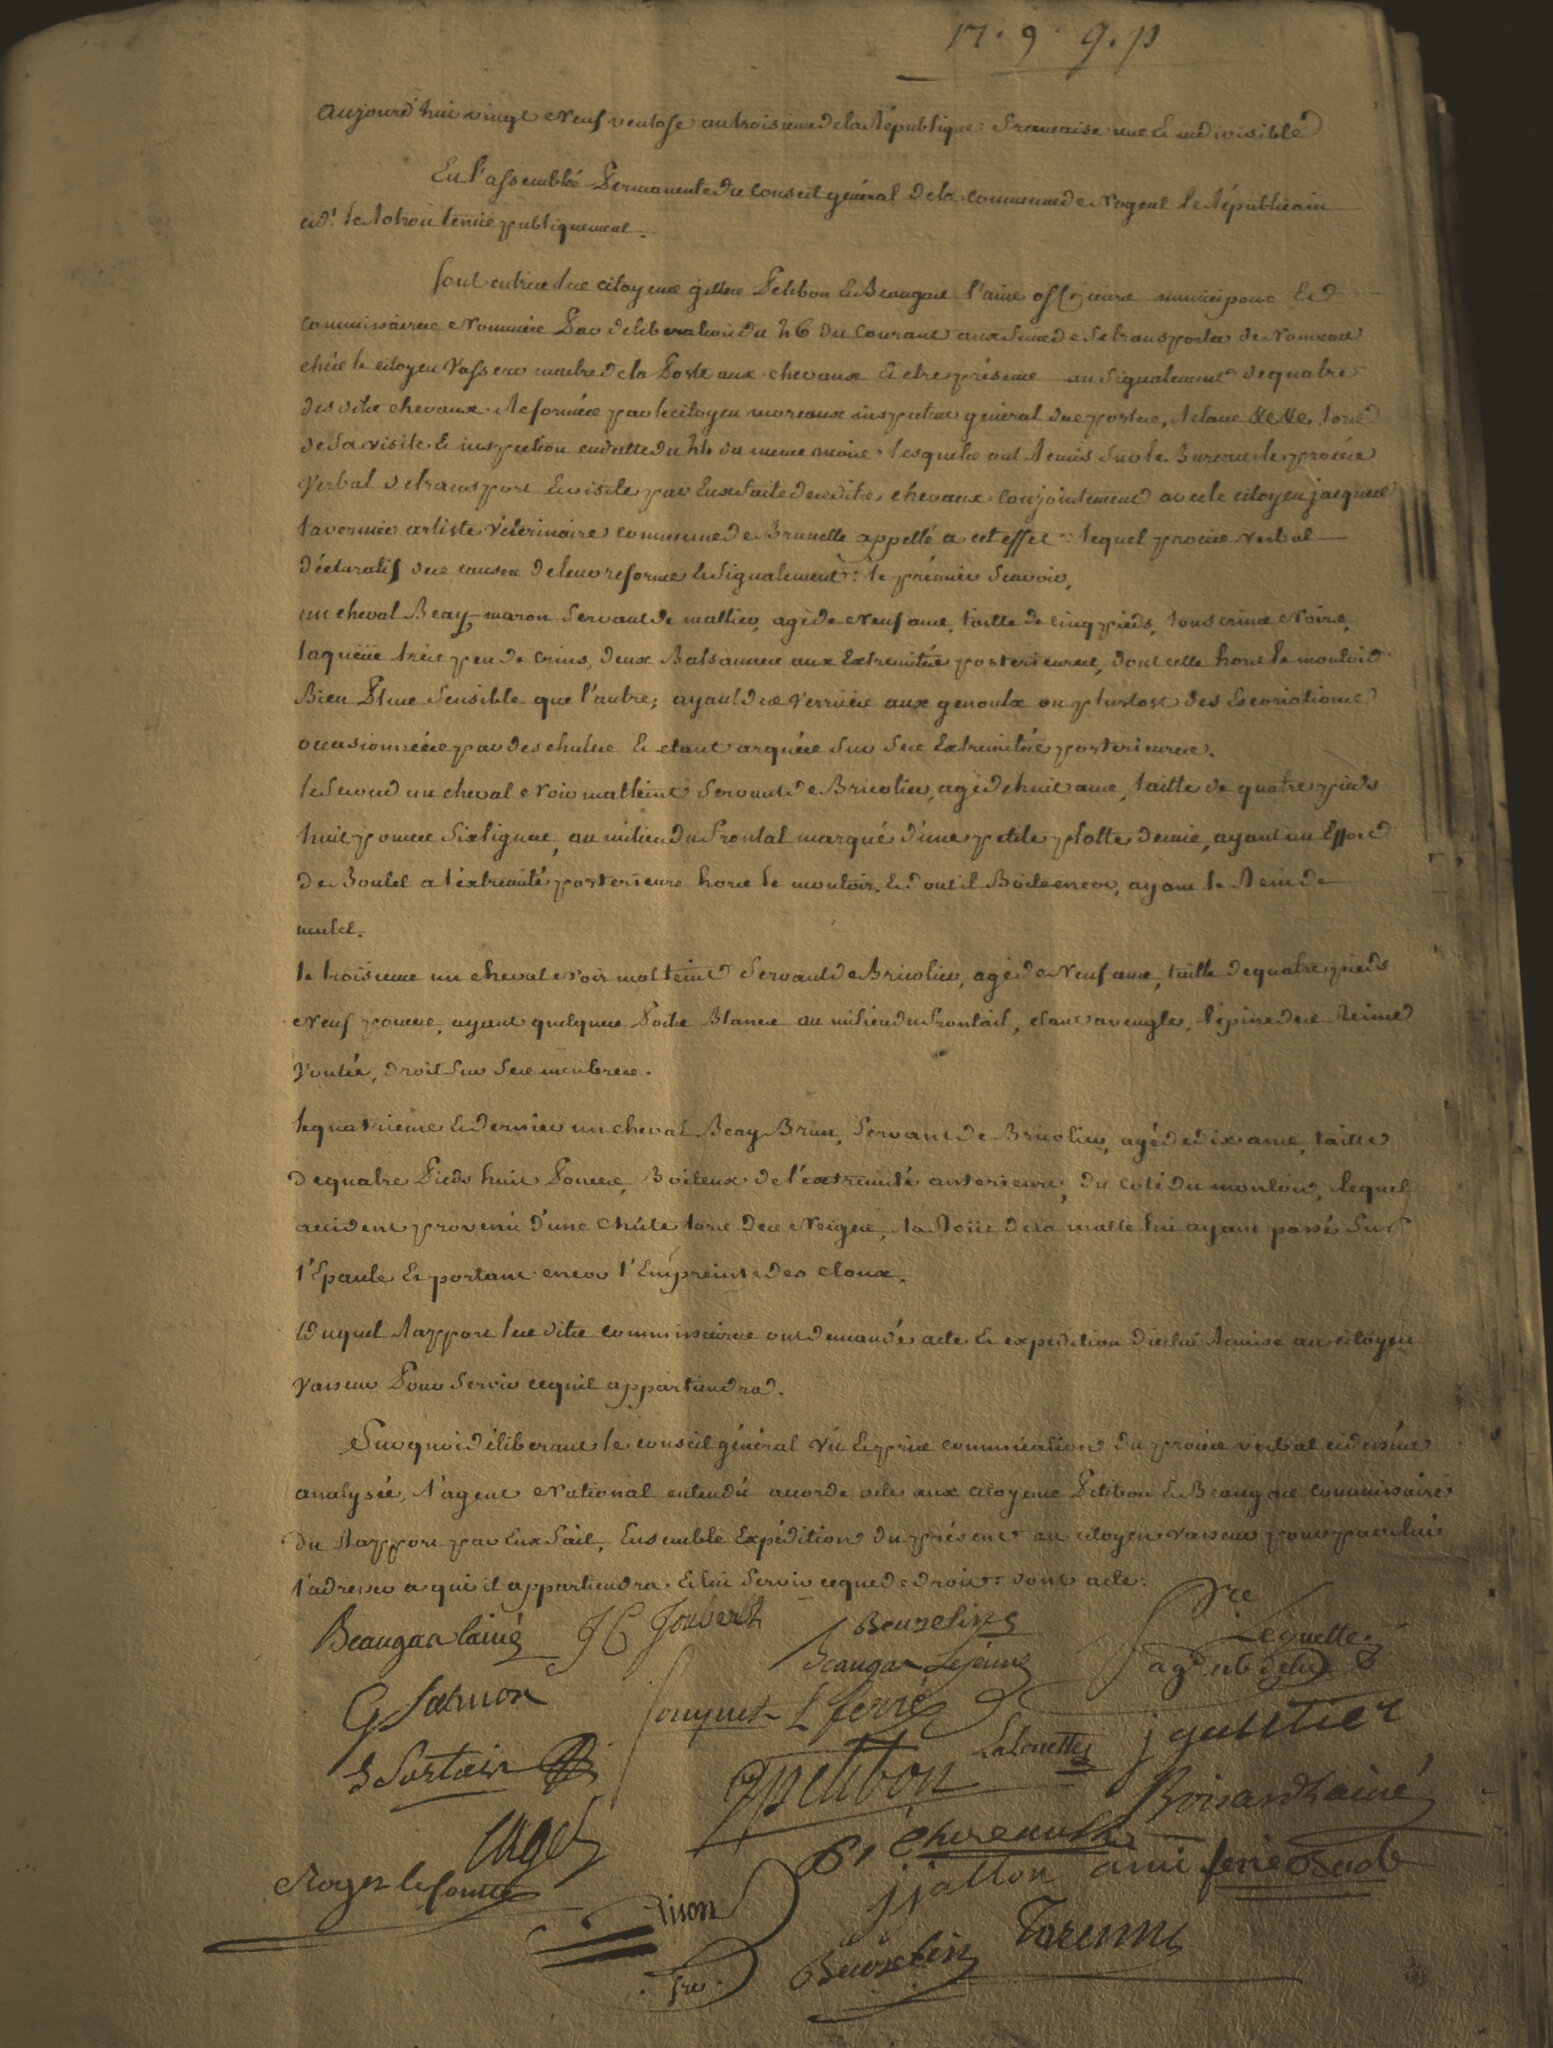 17. 9. 9. p
aujourd'hui vingt Neuf ventose an troisieme de la République francaise une & indivisible
En l'assemblée Permanente du Conseil général de la commune de Nogent le Républicain
cid.t le Rotrou tenüe publiquement.
Sont entrés les citoyens Petitbon & Beaugars l'ainé officiers municipaux &
commissaires Nommés Par deliberation du 26 du Courant aux fins de Se transporter de Nouveau
chés le citoyen Vasseur maitre de la Poste aux chevaux & etre présens au Signalement de quatre
des dits chevaux Reformés par le citoyen moreaux inspecteur général des postes, Relais lors
de Sa visite & inspection en datte du 24 du meme mois lesquels ont Remis Sur le Bureau le procés
Verbal de transport & visite par Eux faite desdits chevaux conjointement avec le citoyen jacques
tavernier artiste Véterinaire commune de Brunelle appellé a cet effet : lequel procés verbal
déclaratif des causes de leur reforme & Signalement : le prémier Scavoir,
un cheval Beay-maron Servant de mallier, agé de Neuf ans, taille de cinq pieds, tous crins Noirs,
la queüe trés peu de crins, deux Balsannes aux Extremités posterieures, dont celle hors le montoir
Bien Plus Sensible que l'autre; ayant des Verrües aux genoulx ou plustost des Excoriations
occasionnéés par des chutes & etant arquée Sur Ses Extremités posterieures.
le Second un cheval Noir malteint Servant de Bricolier, agé de huit ans, taille de quatre pieds
huit pouces Six lignes, au milieu du frontal marqué d'une petite plotte demie, ayant un Effort
de Boulet a l'éxtremité posterieure hors le montoir & dont il Boite encor, ayant le Rein de
mulet.
le troisieme un cheval Noir malteint Servant de Bricolier, agé de Neuf ans, taille de quatre pieds
Neuf pouces, ayant quelques Poils Blancs au milieu du frontail, etant aveugle, l'épine des Reins
Voutée, droit Sur Ses membres.
le quatrieme & dernier un cheval Beay Brun, Servant de Bricolier, agé de dix ans, taille
de quatre Pieds huit Pouces, Boiteux de l'éxtremité anterieure, du coté du montoir, lequel
accident provenü d'une chûte lors des Neiges, la Roüe de la malle lui ayant passé Sur
l'Epaule & portant encor l'Empreinte des cloux.
Duquel Rapport les dits commissaires ont demandé acte & expédition d'icelui Remise au citoyen
Vasseur Pour Servir ce quil appartiendra.
Sur quoi déliberant le conseil général Vû & pris communication du procés verbal cidessus
analysée, l'agent National entendû accorde acte aux citoyens Petitbon & Beaugars commissaires
du Rapport par Eux Fait, Ensemble Expédition du présent au citoyen Vasseur pour par lui
l'adresser a qui il appartiendra & lui Servir ce que de droit : dont acte.
Beaugars lainé JC Joubert Beuzelin fre Lequette
Beaugars Lejeune ag.t nl
G Salmon fouquet L ferré jgaultier
Sortais Petitbon Lalouette Boisardlainé
Huget
Roger lecomte jjallon ami
Tison
Beuzelin